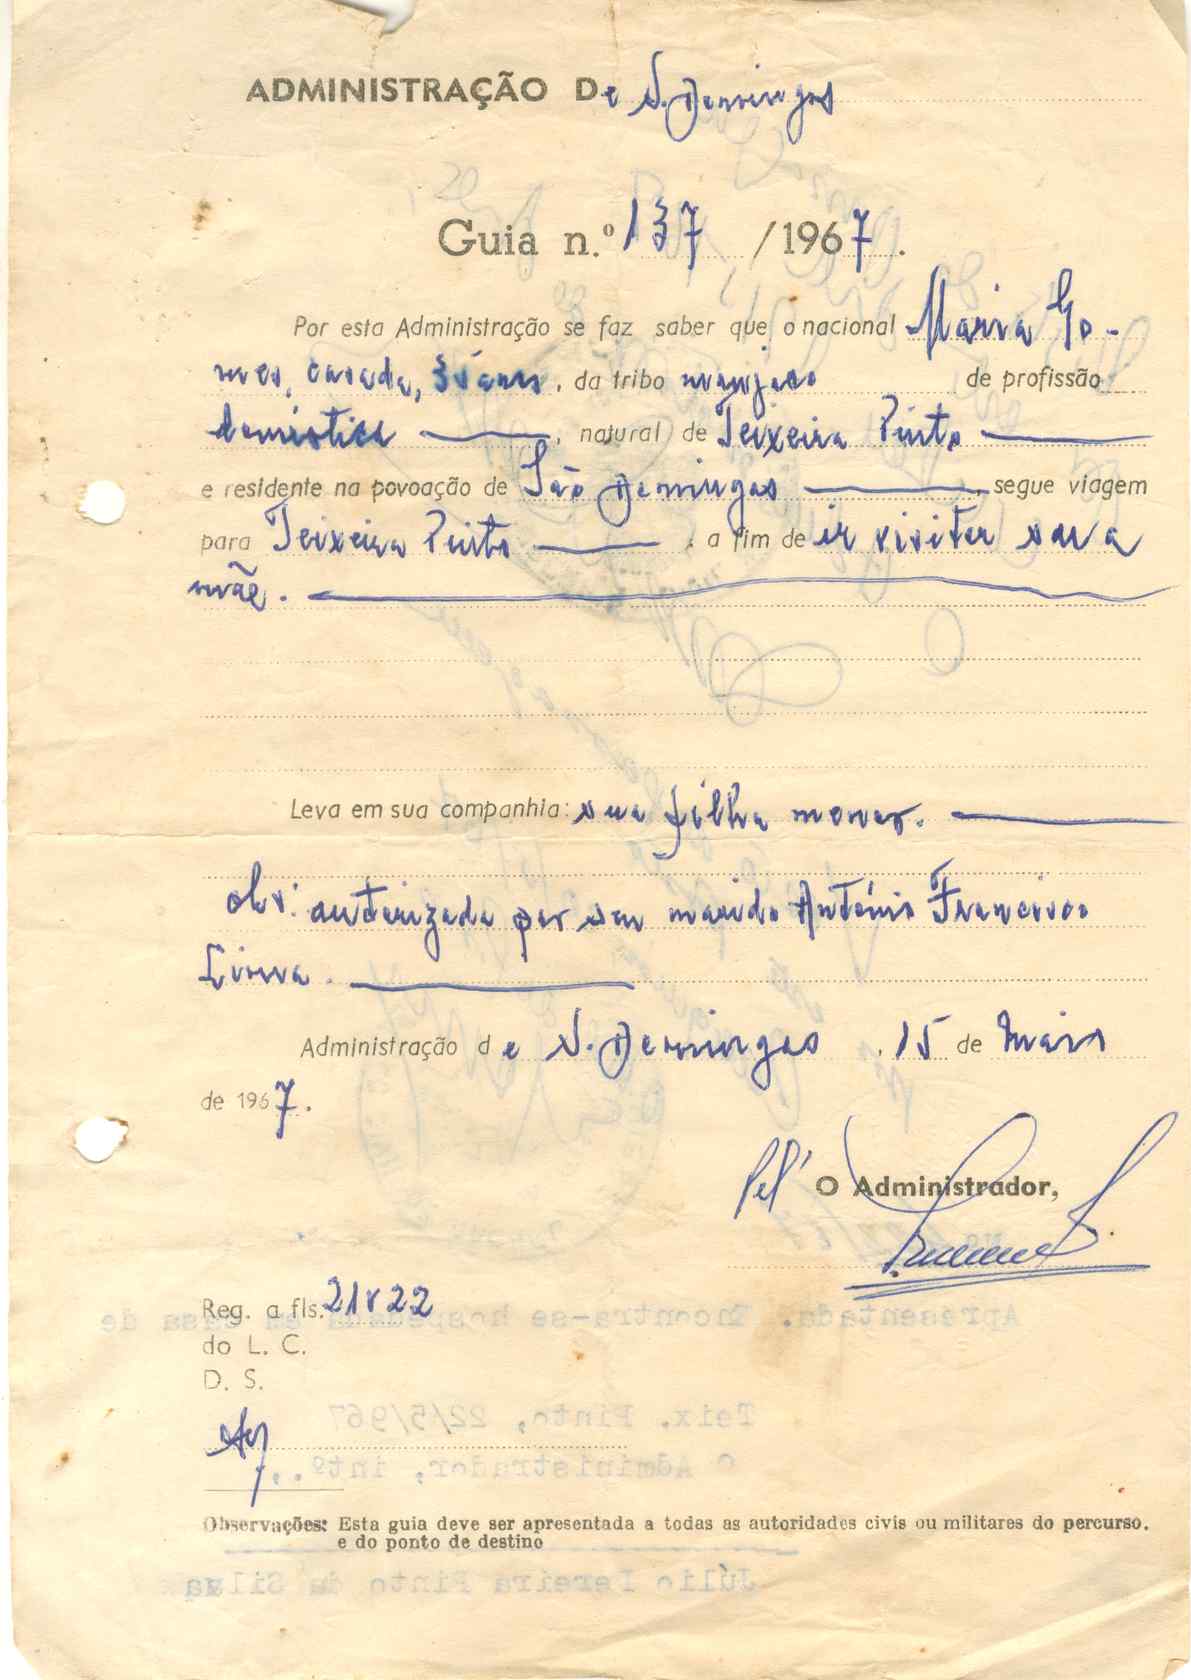 ADMINISTRAÇÃO De S. Domingos
Guia n.º 137 /1967.
Por esta Administração se faz saber que o nacional Maria Go-
mes, casada, anos, da tribo manjaco de profissão
doméstica, natural de Teixeira Pinto
e residente na povoação de São Domingos, segue viagem
para Teixeira Pinto, a fim de ir visitar sua
mãe.
Leva em sua companhia: sua filha menor.
obs: autorizada por seu marido António Francisco
Administração de S. Domingos, 15 de Maio
de 1967.
Pel' O Administrador,
Reg. a fls. 21 v 22
do L. C.
D. S.
Apresentada. Encontra-se hospedada em casa de
Teix. Pinto, 22/5/967
O Administrador, intº.,
Observações: Esta guia deve ser apresentada a todas as autoridades civis ou militares do percurso.
e do ponto de destino
Júlio Pereira Pinto da Silva